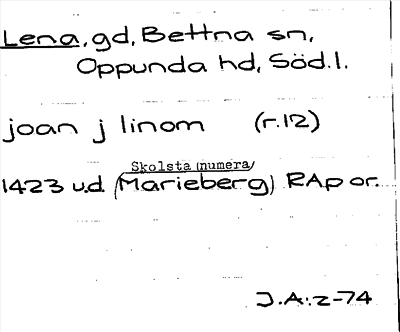 Lena, gd, Bettna sn,
Oppunda hd, Söd.l.
joan j linom (r.12)
Skolsta (numera)
1423 u.d. (Marieberg) RAp or.
J.A:z-74